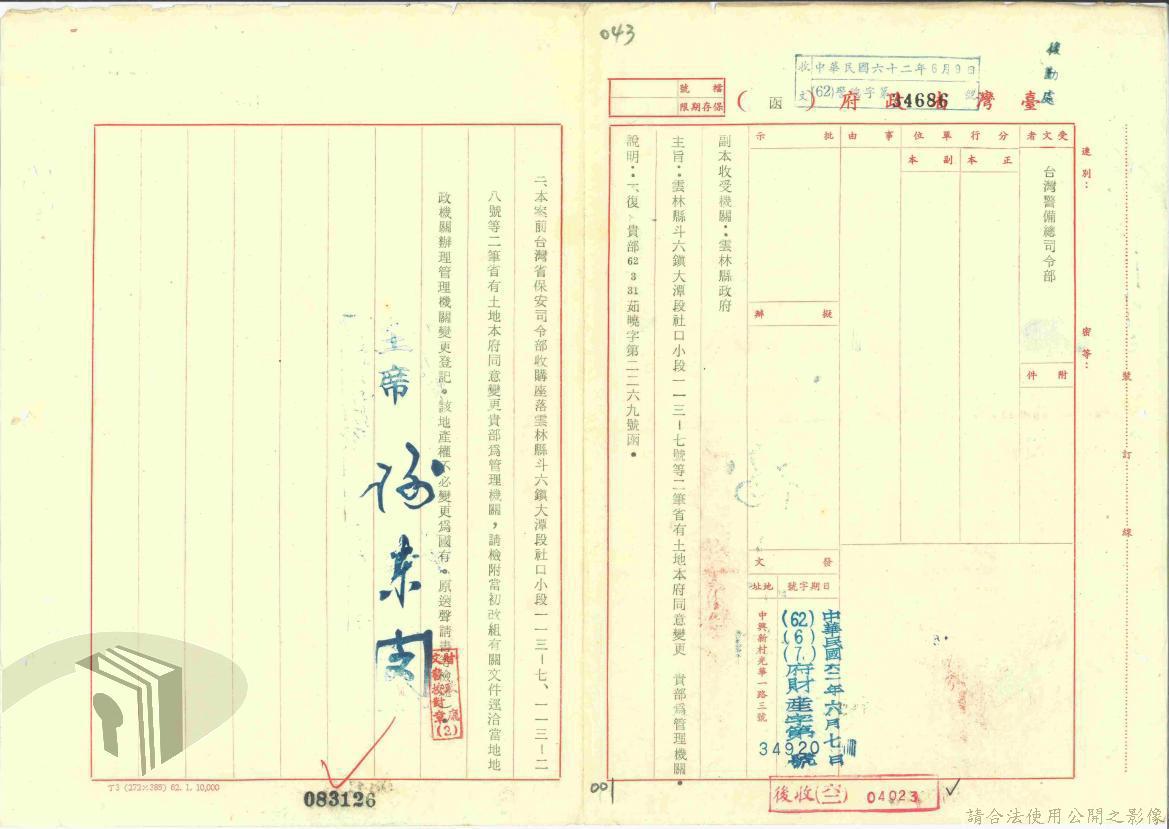 043
後勤處
收文
中華民國六十二年6月9日
(62)學總字第34686號
檔號
保存期限
臺灣省政府（函）
速別：
密等：
裝
訂
線
受文者
台灣警備總司令部
附件
分行單位
正本
副本
事由
批示
擬辦
發文
日期字號
中華民國六二年六月七日
(62)(6)(7)府財產字第34920號
地址
中興新村光華一路三號
副本收受機關：雲林縣政府
主旨：雲林縣斗六鎮大潭段社口小段一一三－七號等二筆省有土地本府同意變更　貴部為管理機關。
說明：一、復　貴部62 3 31茹曉字第二二六九號函。
二、本案前台灣省保安司令部收購座落雲林縣斗六鎮大潭段社口小段一一三－七、一一三－二
八號等二筆省有土地本府同意變更貴部為管理機關，請檢附當初改組有關文件逕洽當地地
政機關辦理管理機關變更登記。該地產權不必變更為國有。原送聲請書
主席
財務
文書校對章
(2)
T3 (272×385) 62. 1. 10,000
083126
001
後收(六二) 04023
請合法使用公開之影像